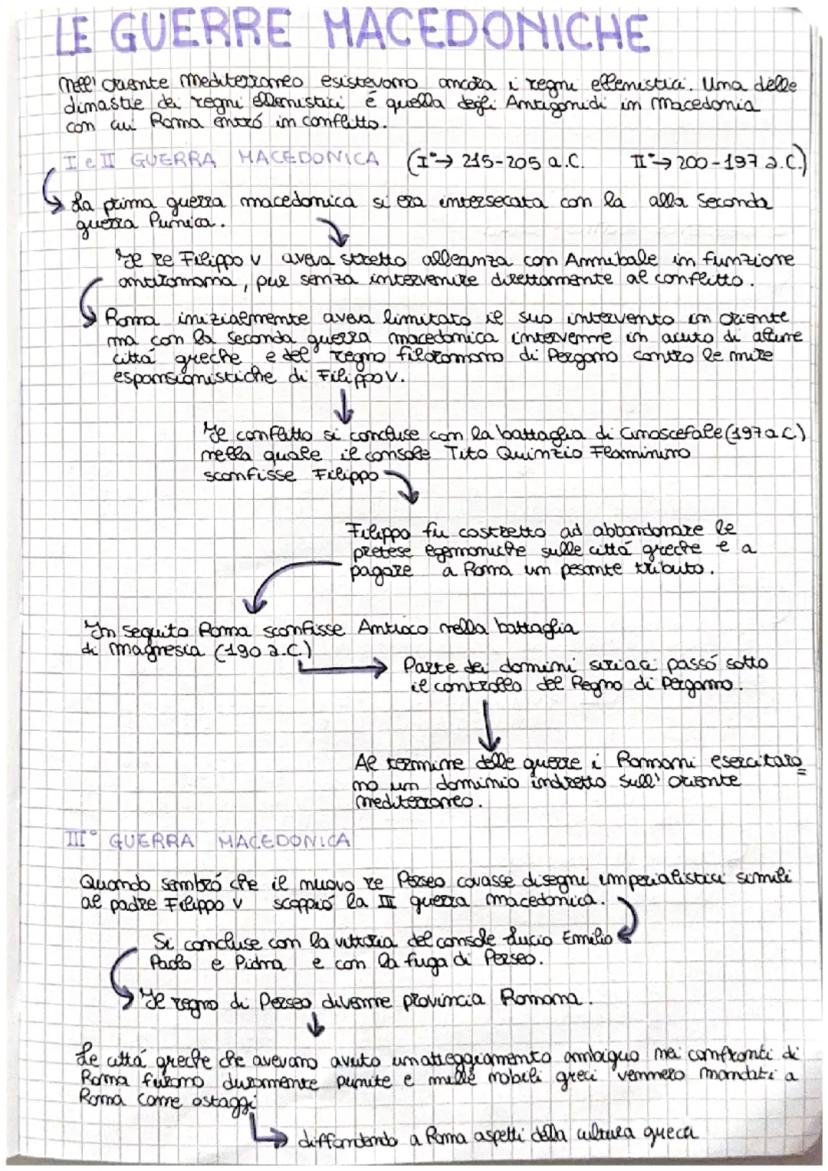 LE GUERRE MACEDONICHE
Nell' oriente mediterraneo esistevano ancora i regni ellenistici. Una delle
dinastie dei regni ellenistici é quella degli Antigonidi in Macedonia
con cui Roma entró in conflitto.
I e II GUERRA MACEDONICA (I°→ 215-205 a.C. II°→ 200-197 a.C.)
La prima guerra macedonica si era intersecata con la alla Seconda
guerra Punica.
Il re Filippo V aveva stretto alleanza con Annibale in funzione
antiromana, pur senza intervenire direttamente al conflitto.
Roma inizialmente aveva limitato il suo intervento in oriente
ma con la seconda guerra macedonica intervenne in aiuto di alcune
cittá greche e del regno filoromano di Pergamo contro le mire
espansionistiche di Filippo V.
Il conflitto si concluse con la battaglia di Cinoscefale (197 a.C.)
nella quale il console Tito Quinzio Flaminino
sconfisse Filippo
Filippo fu costretto ad abbandonare le
pretese egemoniche sulle cittá greche e a
pagare a Roma un pesante tributo.
In seguito Roma sconfisse Antioco nella battaglia
di Magnesia (190 a.C.)
Parte dei domini siriaci passó sotto
il controllo del Regno di Pergamo.
Al termine delle guerre i Romani esercitaro
no un dominio indiretto sull' oriente
mediterraneo.
III° GUERRA MACEDONICA
Quando sembró che il nuovo re Perseo covasse disegni imperialistici simili
al padre Filippo V scoppió la III guerra macedonica.
Si concluse con la vittoria del console Lucio Emilio
Paolo e Pidna e con la fuga di Perseo.
Il regno di Perseo divenne provincia Romana.
Le cittá greche che avevano avuto un atteggiamento ambiguo nei confronti di
Roma furono duramente punite e mille nobili greci vennero mandati a
Roma come ostaggi
diffondendo a Roma aspetti della cultura greca